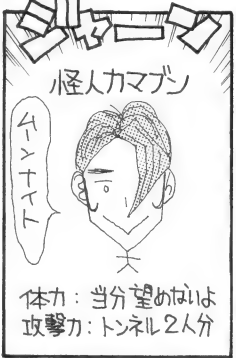 怪人カマブン
ムーンナイト
体力：当分望めないよ
攻撃力：トンネル2人分